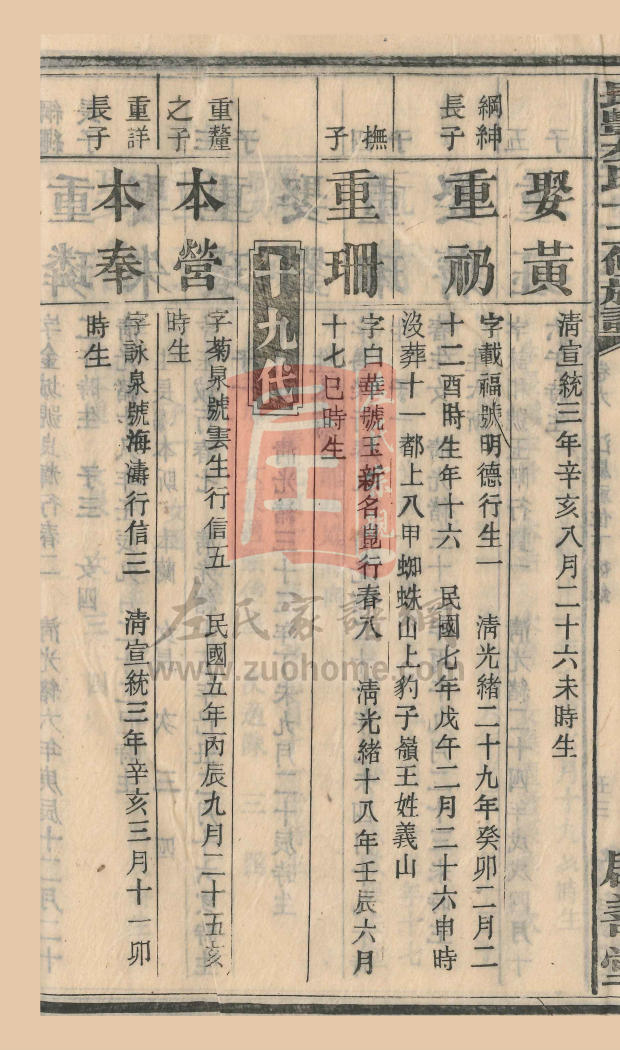 娶黃
清宣統三年辛亥八月二十六未時生
綱紳
長子
重礽
字載福號明德行生一 清光緒二十九年癸卯二月二
十二酉時生年十六 民國七年戊午二月二十六申時
沒葬十一都上八甲蜘蛛山上豹子嶺王姓義山
撫
子
重珊
字白華號玉新名崑行春八 清光緒十八年壬辰六月
十七巳時生
十九代
重釐
之子
本營
字菊泉號雲生行信五 民國五年丙辰九月二十五亥
時生
重詳
長子
本奉
字詠泉號海濤行信三 清宣統三年辛亥三月十一卯
時生
左氏家譜網
www.zuohome.com